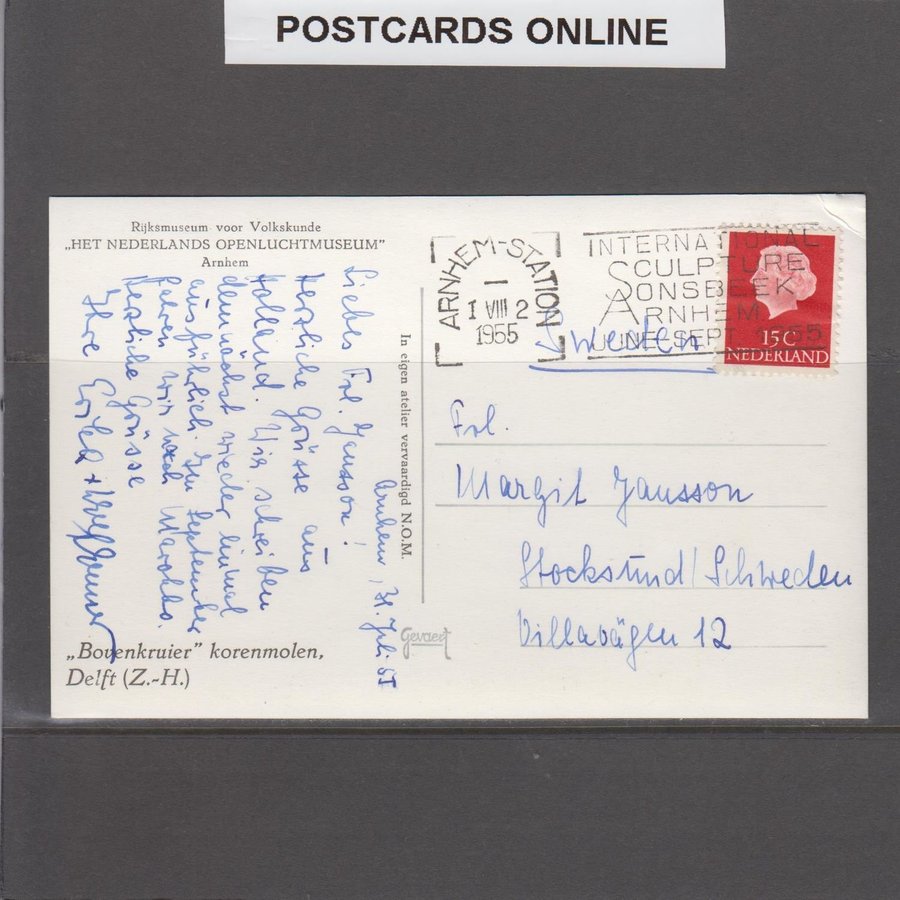 POSTCARDS ONLINE
Rijksmuseum voor Volkskunde
„HET NEDERLANDS OPENLUCHTMUSEUM”
Arnhem
Arnhem, 31. Juli 55
Liebes Frl. Jansson!
Herzliche Grüsse aus
Holland. Wir schreiben
demnächst wieder einmal
ausführlich. Im September
fahren wir nach Marokko.
Herzliche Grüsse
Ihre
„Bovenkruier” korenmolen,
Delft (Z.-H.)
In eigen atelier vervaardigd N.O.M.
Gevaert
ARNHEM-STATION
1 VIII 2
1955
INTERNATIONAL
SCULPTURE
SONSBEEK
ARNHEM
JUNE-SEPT. 1955
15C
NEDERLAND
Zweden
Frl.
Margit Jansson
Stocksund/Schweden
Villavägen 12